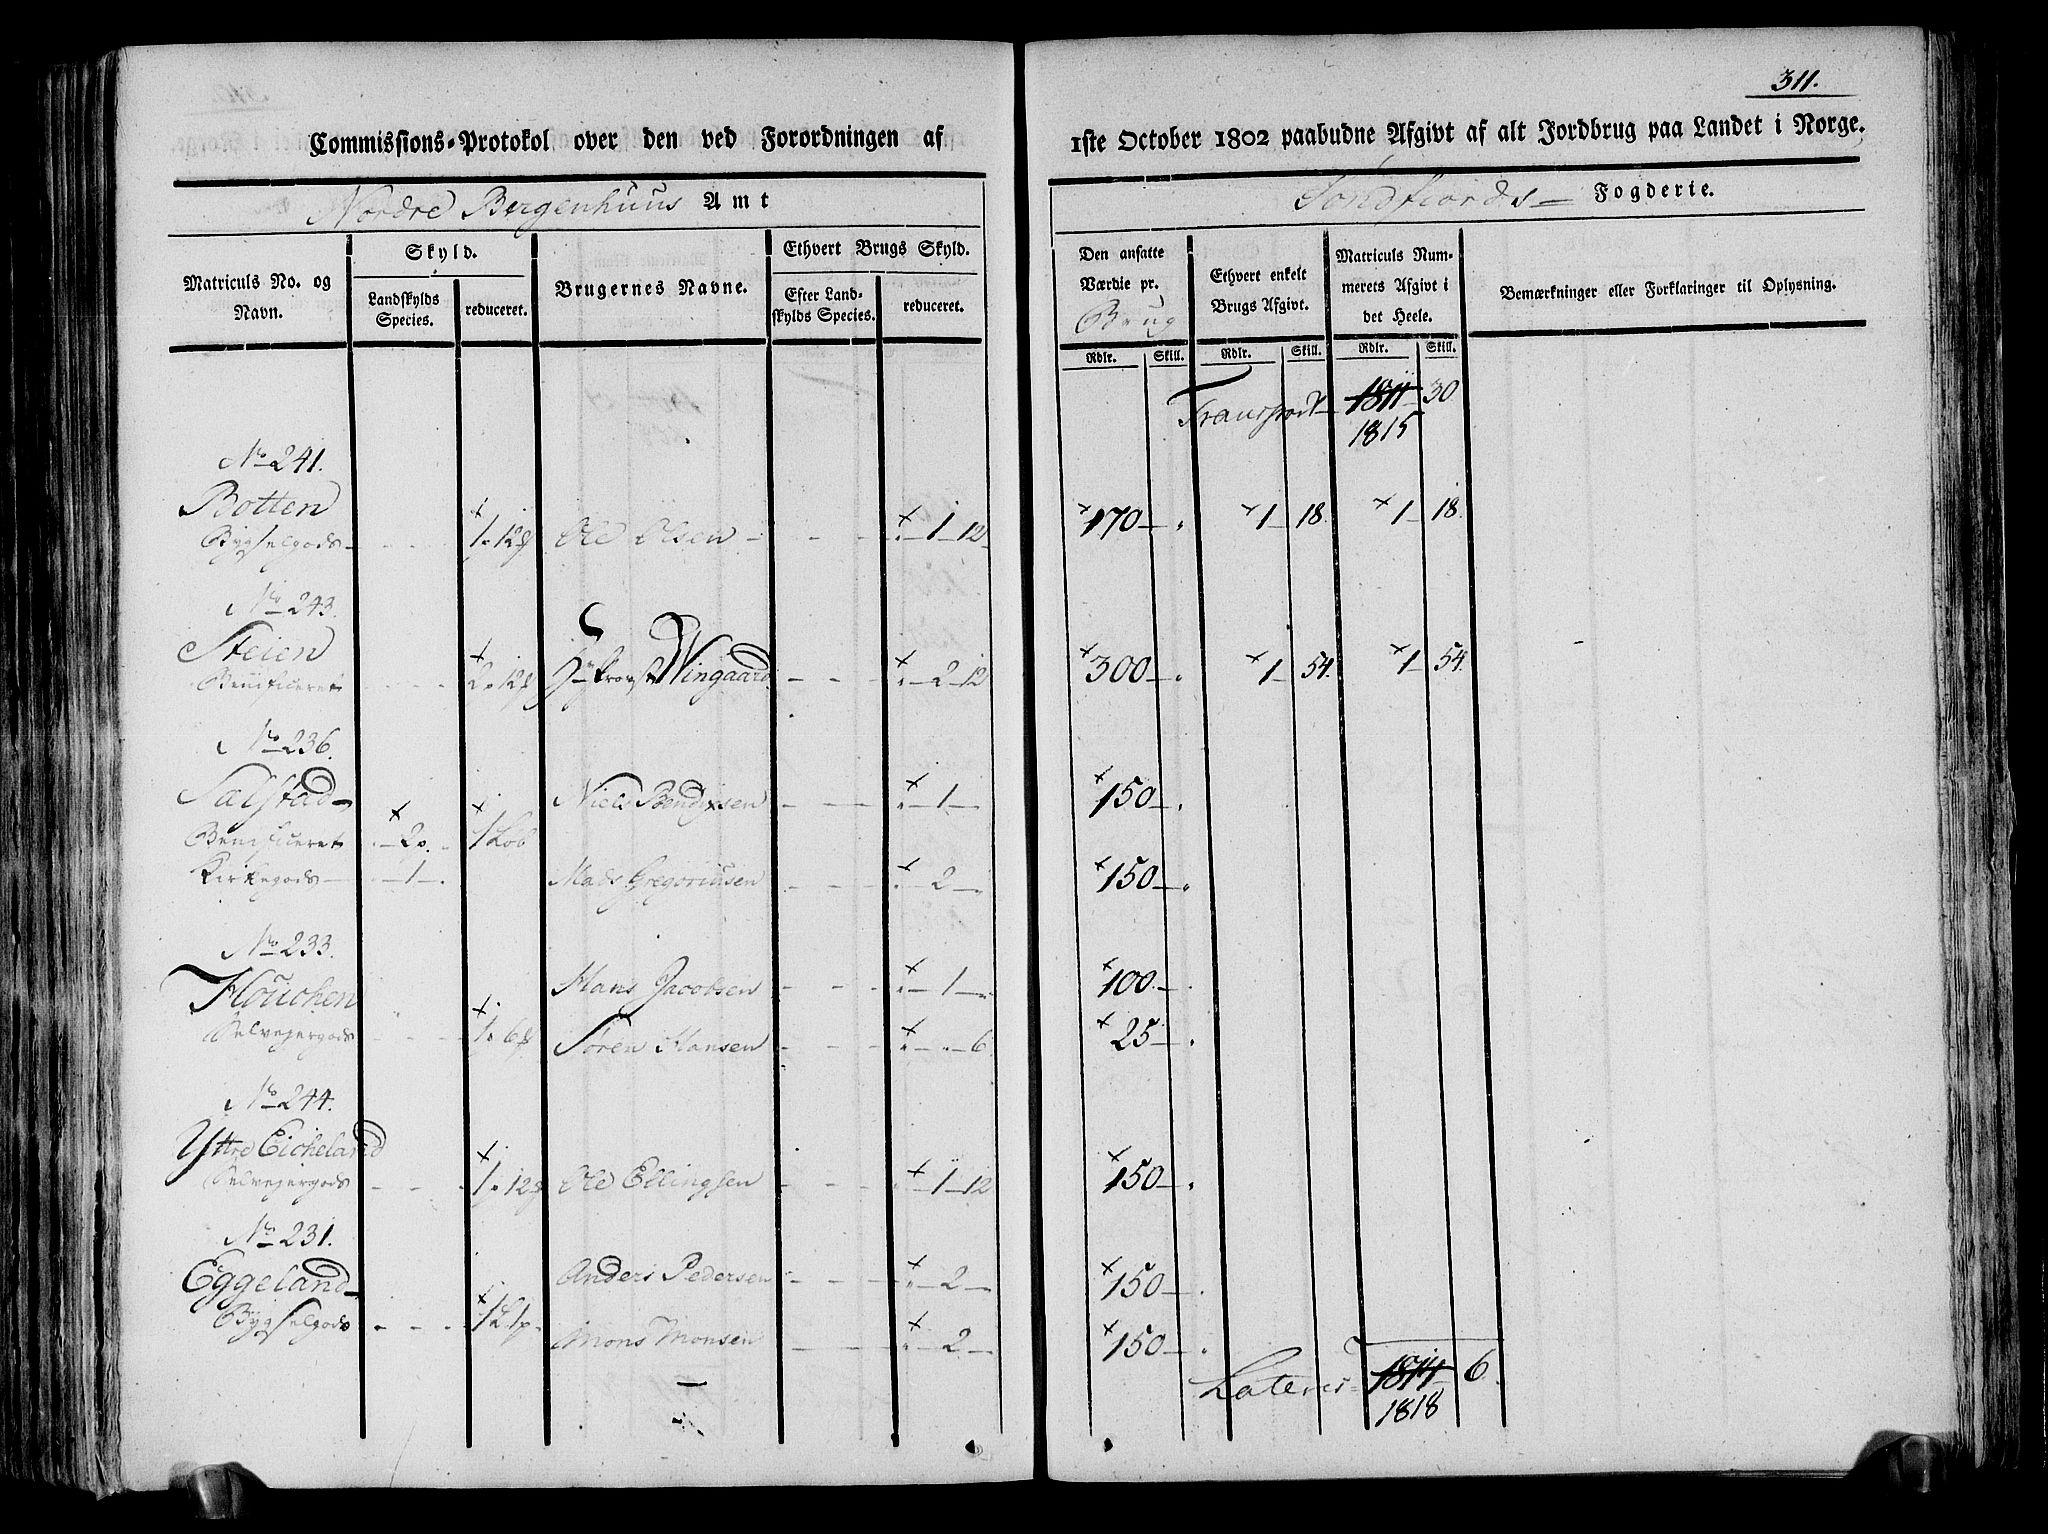 311.
Commissions-Protokol over den ved Forordningen af 1ste October 1802 paabudne Afgivt af alt Jordbrug paa Landet i Norge.
Nordre Bergenhuus Amt
Søndfiords Fogderie.
Matriculs No. og Navn.
Skyld.
Landskylds Species.
reduceret.
Brugernes Navne.
Ethvert Brugs Skyld.
Efter Landskylds Species.
reduceret.
Den ansatte Værdie pr. Brug
Ethvert enkelt Brugs Afgivt.
Matriculs Nummerets Afgivt i det Heele.
Bemærkninger eller Forklaringer til Oplysning.
Rdlr. Skill. Rdlr. Skill. Rdlr. Skill.
Transport 1811 30
1815
No 241.
Botten
Bygselgods 1 12 Ole Olsen 1 12 170 1 18. 1 18.
No 243.
Steien
Benificeret 2 12 Wingaard 2 12 300 1 54. 1 54.
No 236.
Sælstad Niels Bendixsen 1 150
Benificeret 2 1 Løb
Kirkegods 1 Mads Gregoriusen 2 150
No 233.
Houchen Hans Jacobsen 1 100
Selvejergods 1 6 Søren Hansen 6 25
No 244.
Yttre Eicheland
Selvejergods 1 12 Ole Ellingsen 1 12 150
No 231.
Eggeland Anders Pedersen 2 150
Bygselgods 1 Mons Monsen 2 150
Lateris 6
1818